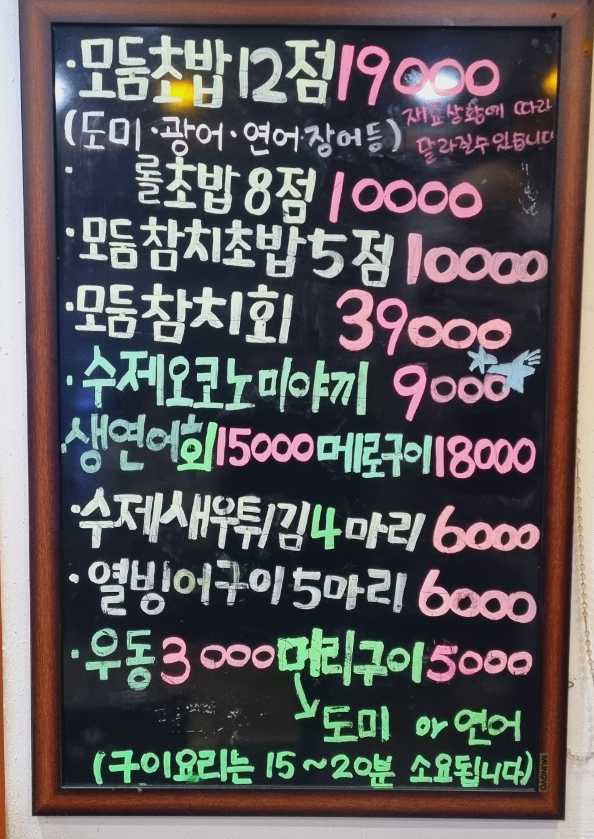 ·모둠초밥 12점 19000
(도미·광어·연어·장어등) 재료상황에 따라
달라질수있습니다
· 롤초밥 8점 10000
·모둠참치초밥 5점 10000
·모둠참치회 39000
·수제오코노미야끼 9000
·생연어회 15000 메로구이 18000
·수제새우튀김 4마리 6000
·열빙어구이 5마리 6000
·우동 3000 머리구이 5000
↘도미 or 연어
(구이요리는 15~20분 소요됩니다)
MINGYO